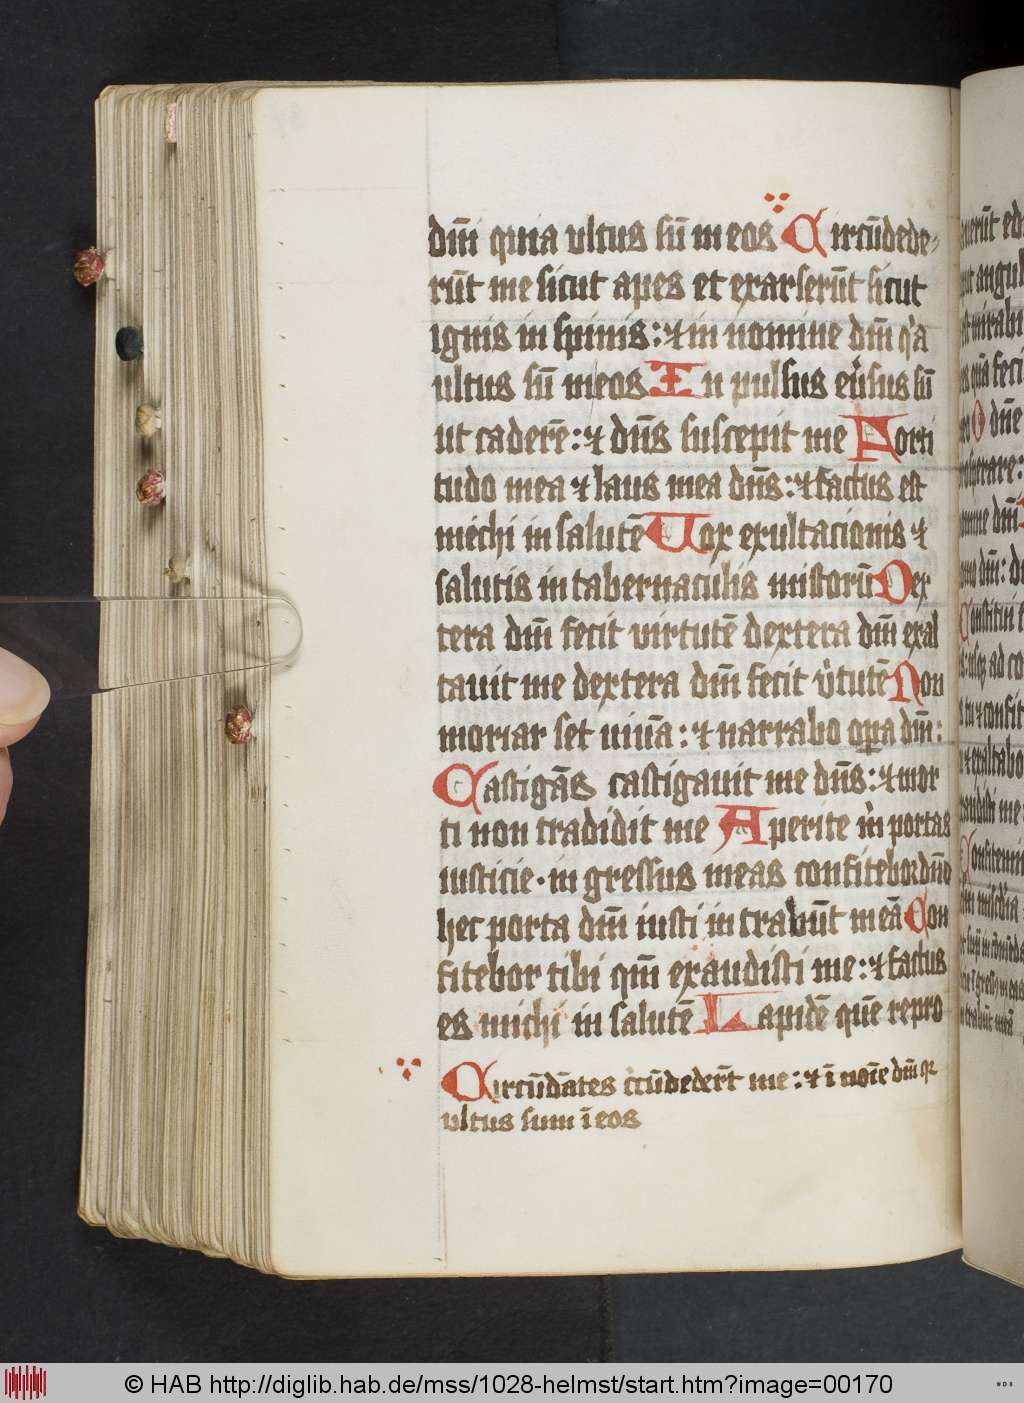 dn̄i quia ultus sū in eos Circūdede-
rūt me sicut apes et exarserūt sicut
ignis in spinis: ⁊ in nomine dn̄i q̇a
ultus sū in eos In pulsus eūsus sū
ut caderē: ⁊ dn̄s suscepit me Forti
tudo mea ⁊ laus mea dn̄s: ⁊ factus est
michi in salutē Uox exultacionis ⁊
salutis in tabernaculis iustorū Dex
tera dn̄i fecit virtutē dextera dn̄i exal
tauit me dextera dn̄i fecit v̓tutē Non
moriar set uiuā: ⁊ narrabo oꝑa dn̄i:
Castigās castigauit me dn̄s: ⁊ mor
ti non tradidit me Aperite m̓ portas
iusticie · in gressus in eas confitebor dn̄o
hec porta dn̄i iusti in trabūt in eā Con
fitebor tibi qm̄ exaudisti me: ⁊ factus
es michi in salutē Lapidē quē repro
Circūdātes circūdedert̄ me: ⁊ ī noīe dn̄i qꝛ
ultus sum ī eos
© HAB http://diglib.hab.de/mss/1028-helmst/start.htm?image=00170